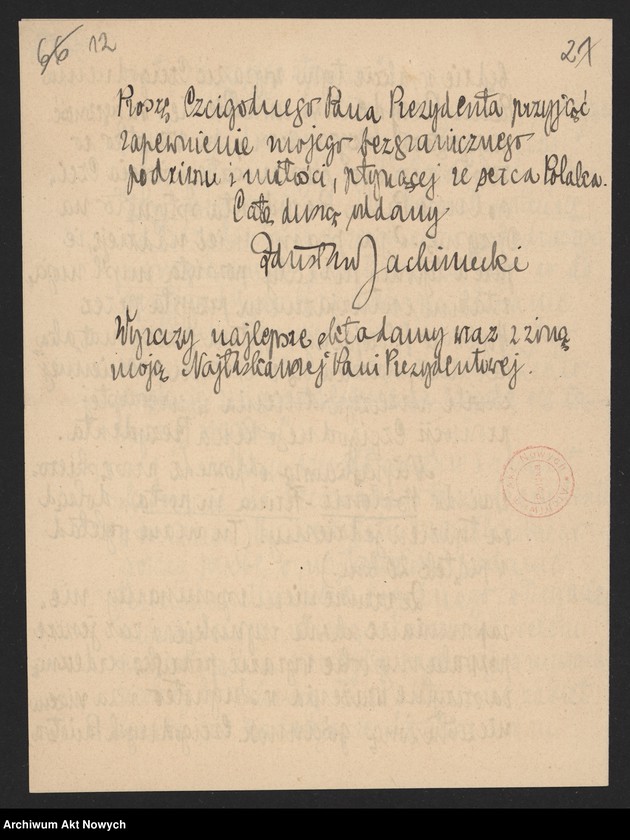 66 12
21
Proszę Czcigodnego Pana Prezydenta przyjąć
zapewnienie mojego bezgranicznego
podziwu i miłości, płynącej ze serca Polaka.
Całą duszą oddany
Zdzisław Jachimecki
Wyrazy najlepsze składamy wraz z żoną
moją Najłaskawszej Pani Prezydentowej.
Archiwum Akt Nowych